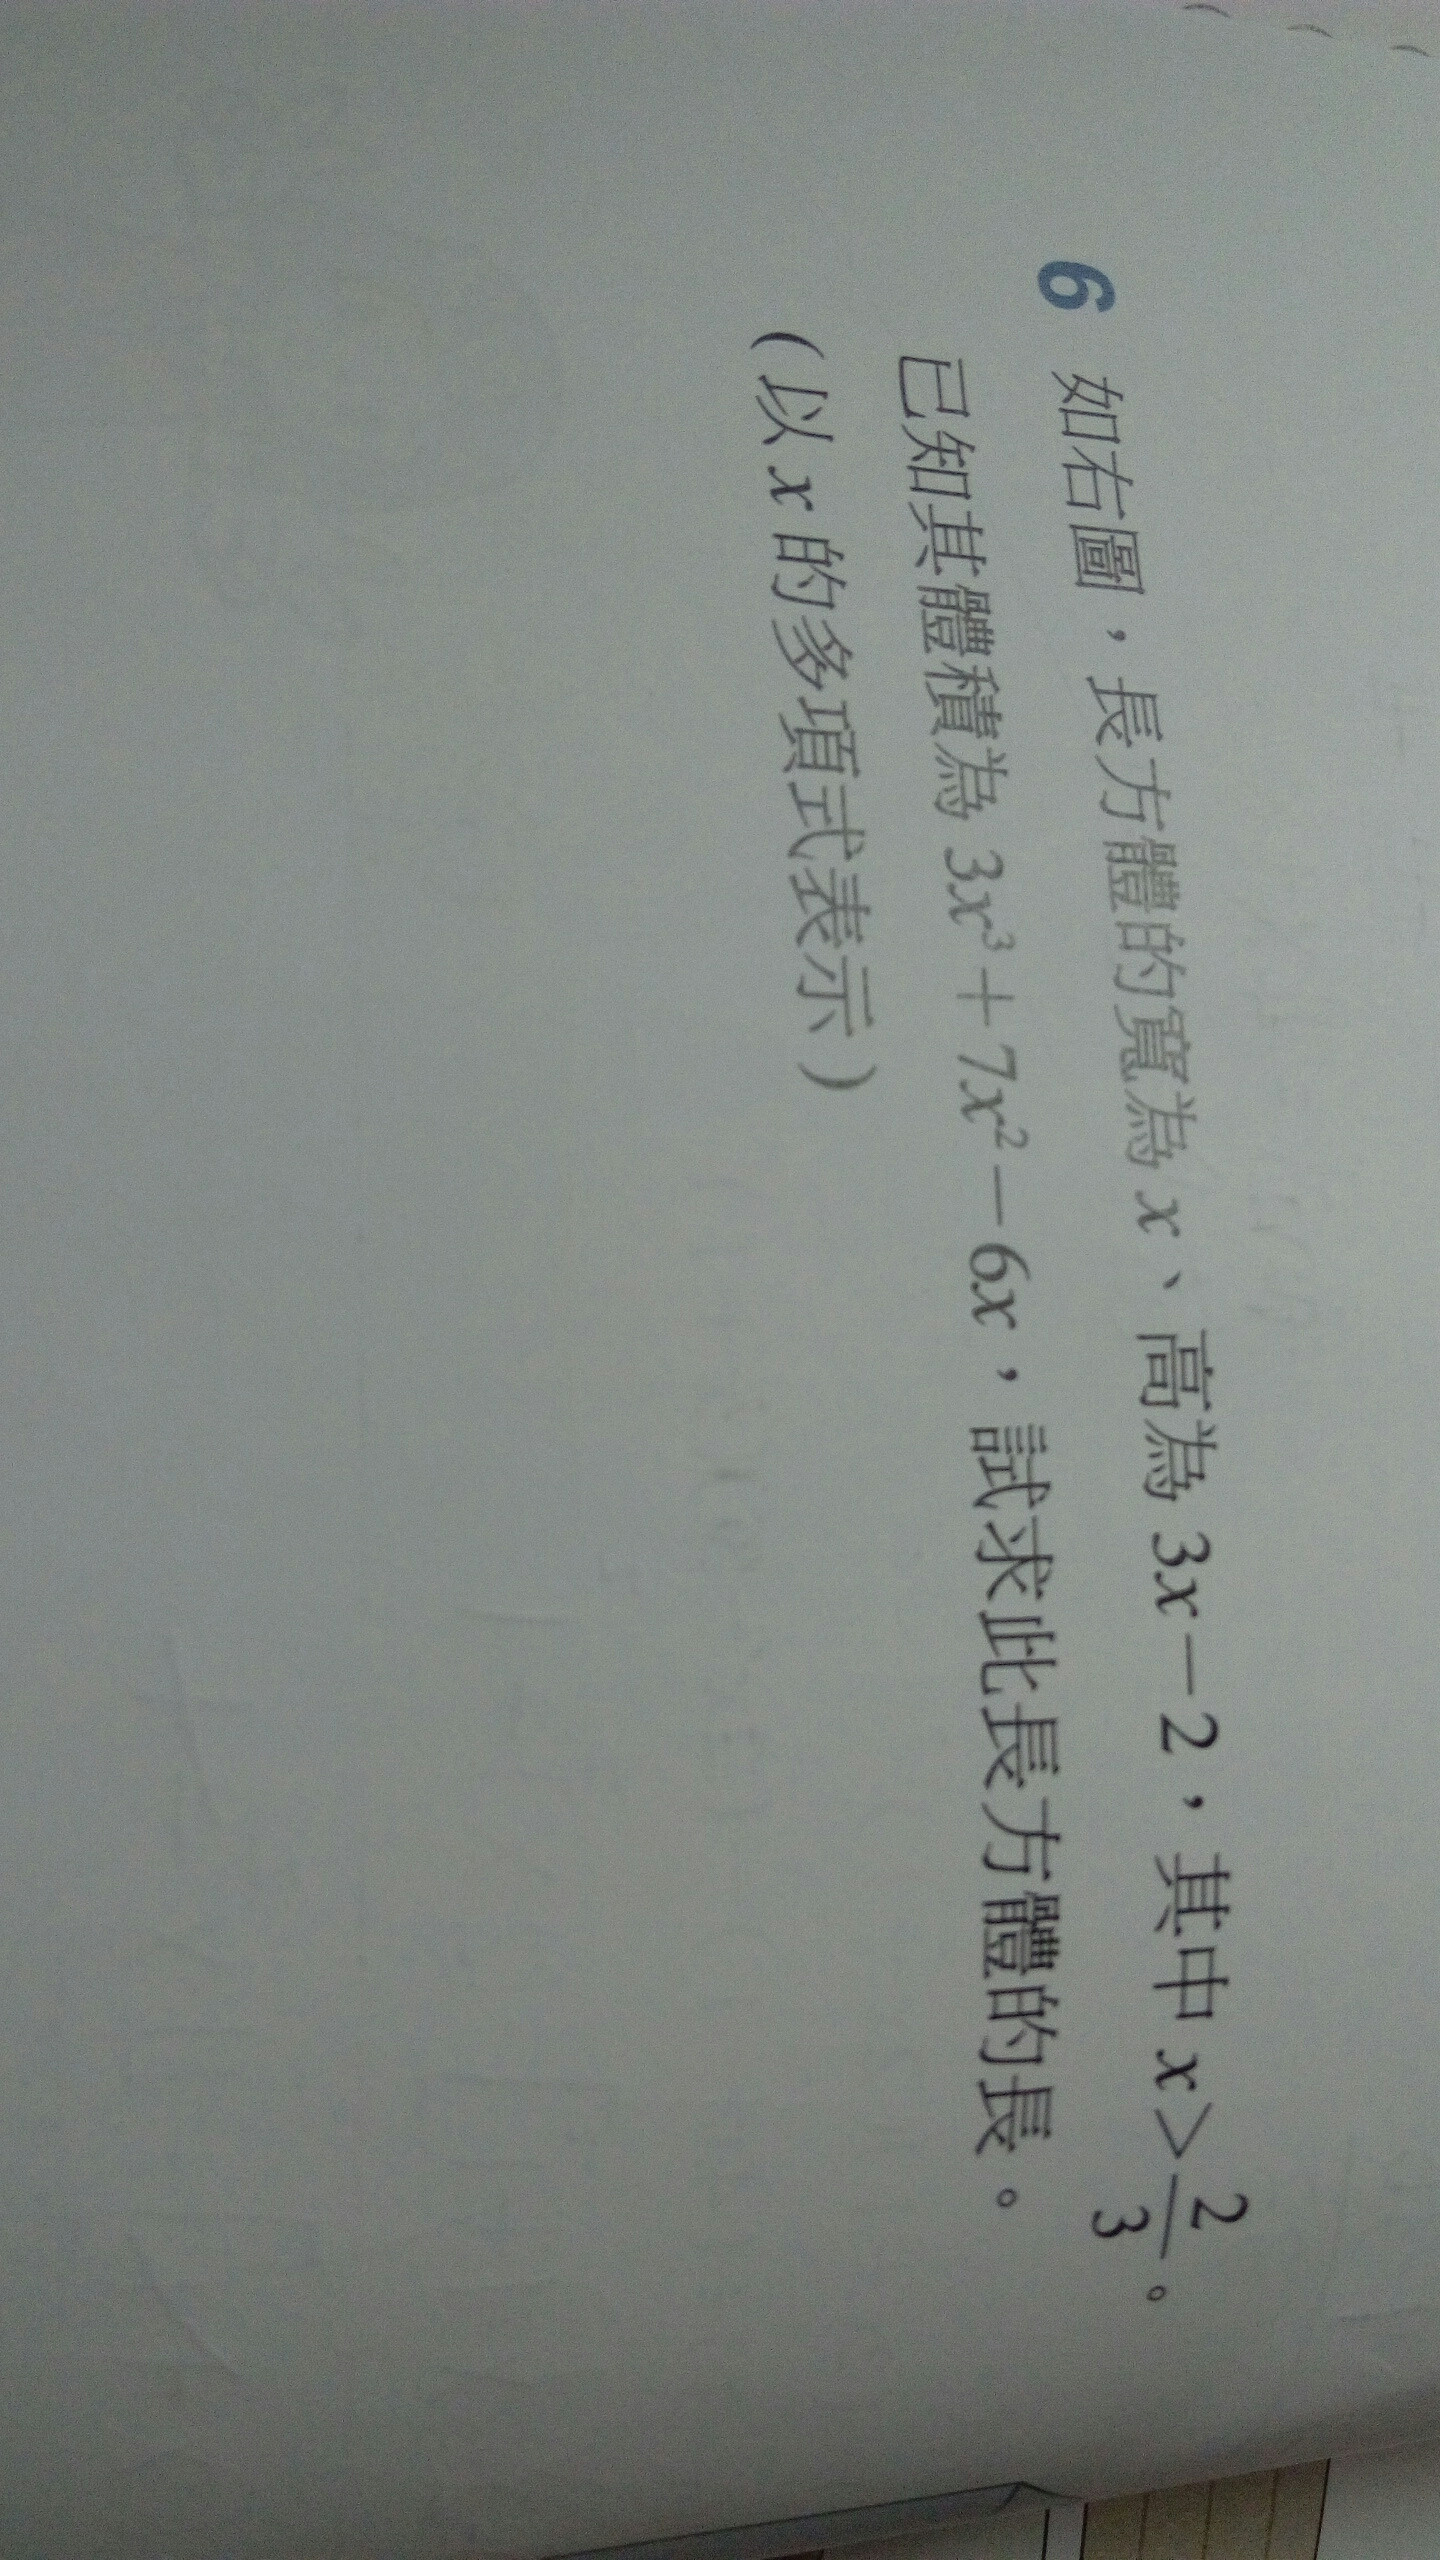 6 如右圖，長方體的寬為 x、高為 3x－2，其中 x＞2/3。
已知其體積為 3x³＋7x²－6x，試求此長方體的長。
(以 x 的多項式表示)